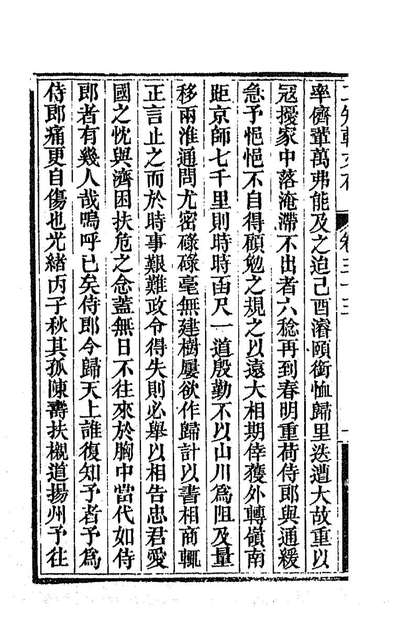 率儕輩萬弗能及之迨己酉濬頤銜恤歸里迭遭大故重以
冦擾家中落淹滯不出者六稔再到春明重荷侍郎與通緩
急予悒悒不自得顧勉之規之以遠大相期倖獲外轉嶺南
距京師七千里則時時函尺一道殷勤不以山川爲阻及量
移兩淮通問尤密碌碌毫無建樹屢欲作歸計以書相商輒
正言止之而於時事艱難政令得失則必舉以相告忠君愛
國之忱與濟困扶危之念蓋無日不往來於胸中當代如侍
郎者有幾人哉嗚呼已矣侍郎今歸天上誰復知予者予爲
侍郎痛更自傷也光緒丙子秋其孤陳壽扶櫬道揚州予往